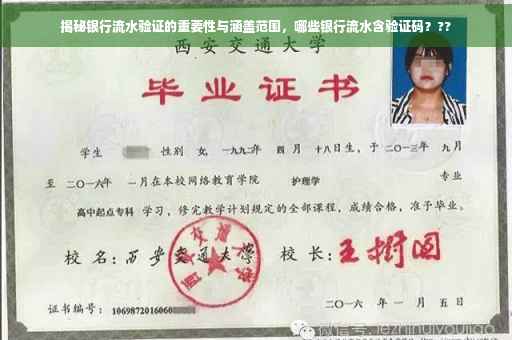 揭秘银行流水验证的重要性与涵盖范围，哪些银行流水含验证码？??
西安交通大学
毕业证书
学生 性别 女，一九九二年 四 月 十八日生，于 二〇一三年 九月
至 二〇一六年 一月在本校网络教育学院 护理学 专业
高中起点专科 学习，修完教学计划规定的全部课程，成绩合格，准予毕业。
校 名：西安交通大学 校 长：王树国
西安交通大学
证书编号：1069872016060
二〇一六 年 一 月 五 日
微信号:jiezhihuiyoujiao